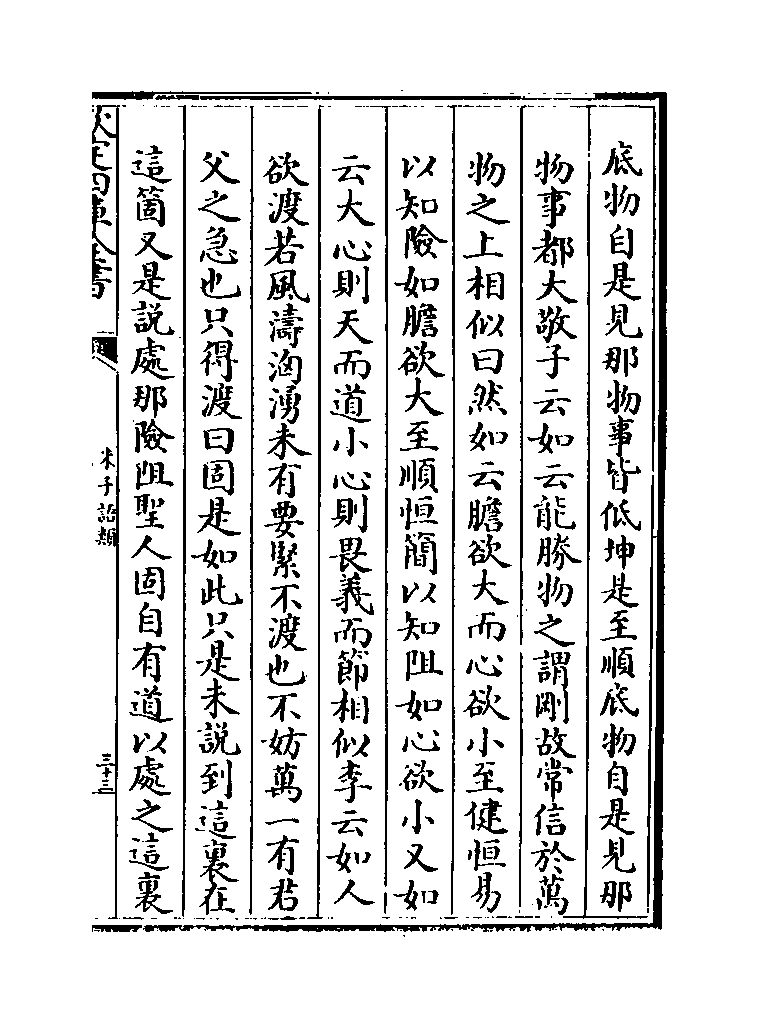 底物自是見那物事皆低坤是至順底物自是見那
物事都大敬子云如云能勝物之謂剛故常信於萬
物之上相似曰然如云膽欲大而心欲小至健恒易
以知險如膽欲大至順恒簡以知阻如心欲小又如
云大心則天而道小心則畏義而節相似李云如人
欲渡若風濤洶湧未有要緊不渡也不妨萬一有君
父之急也只得渡曰固是如此只是未說到這裏在
這箇又是說處那險阻聖人固自有道以處之這裏
欽定四庫全書
朱子語類
三十三